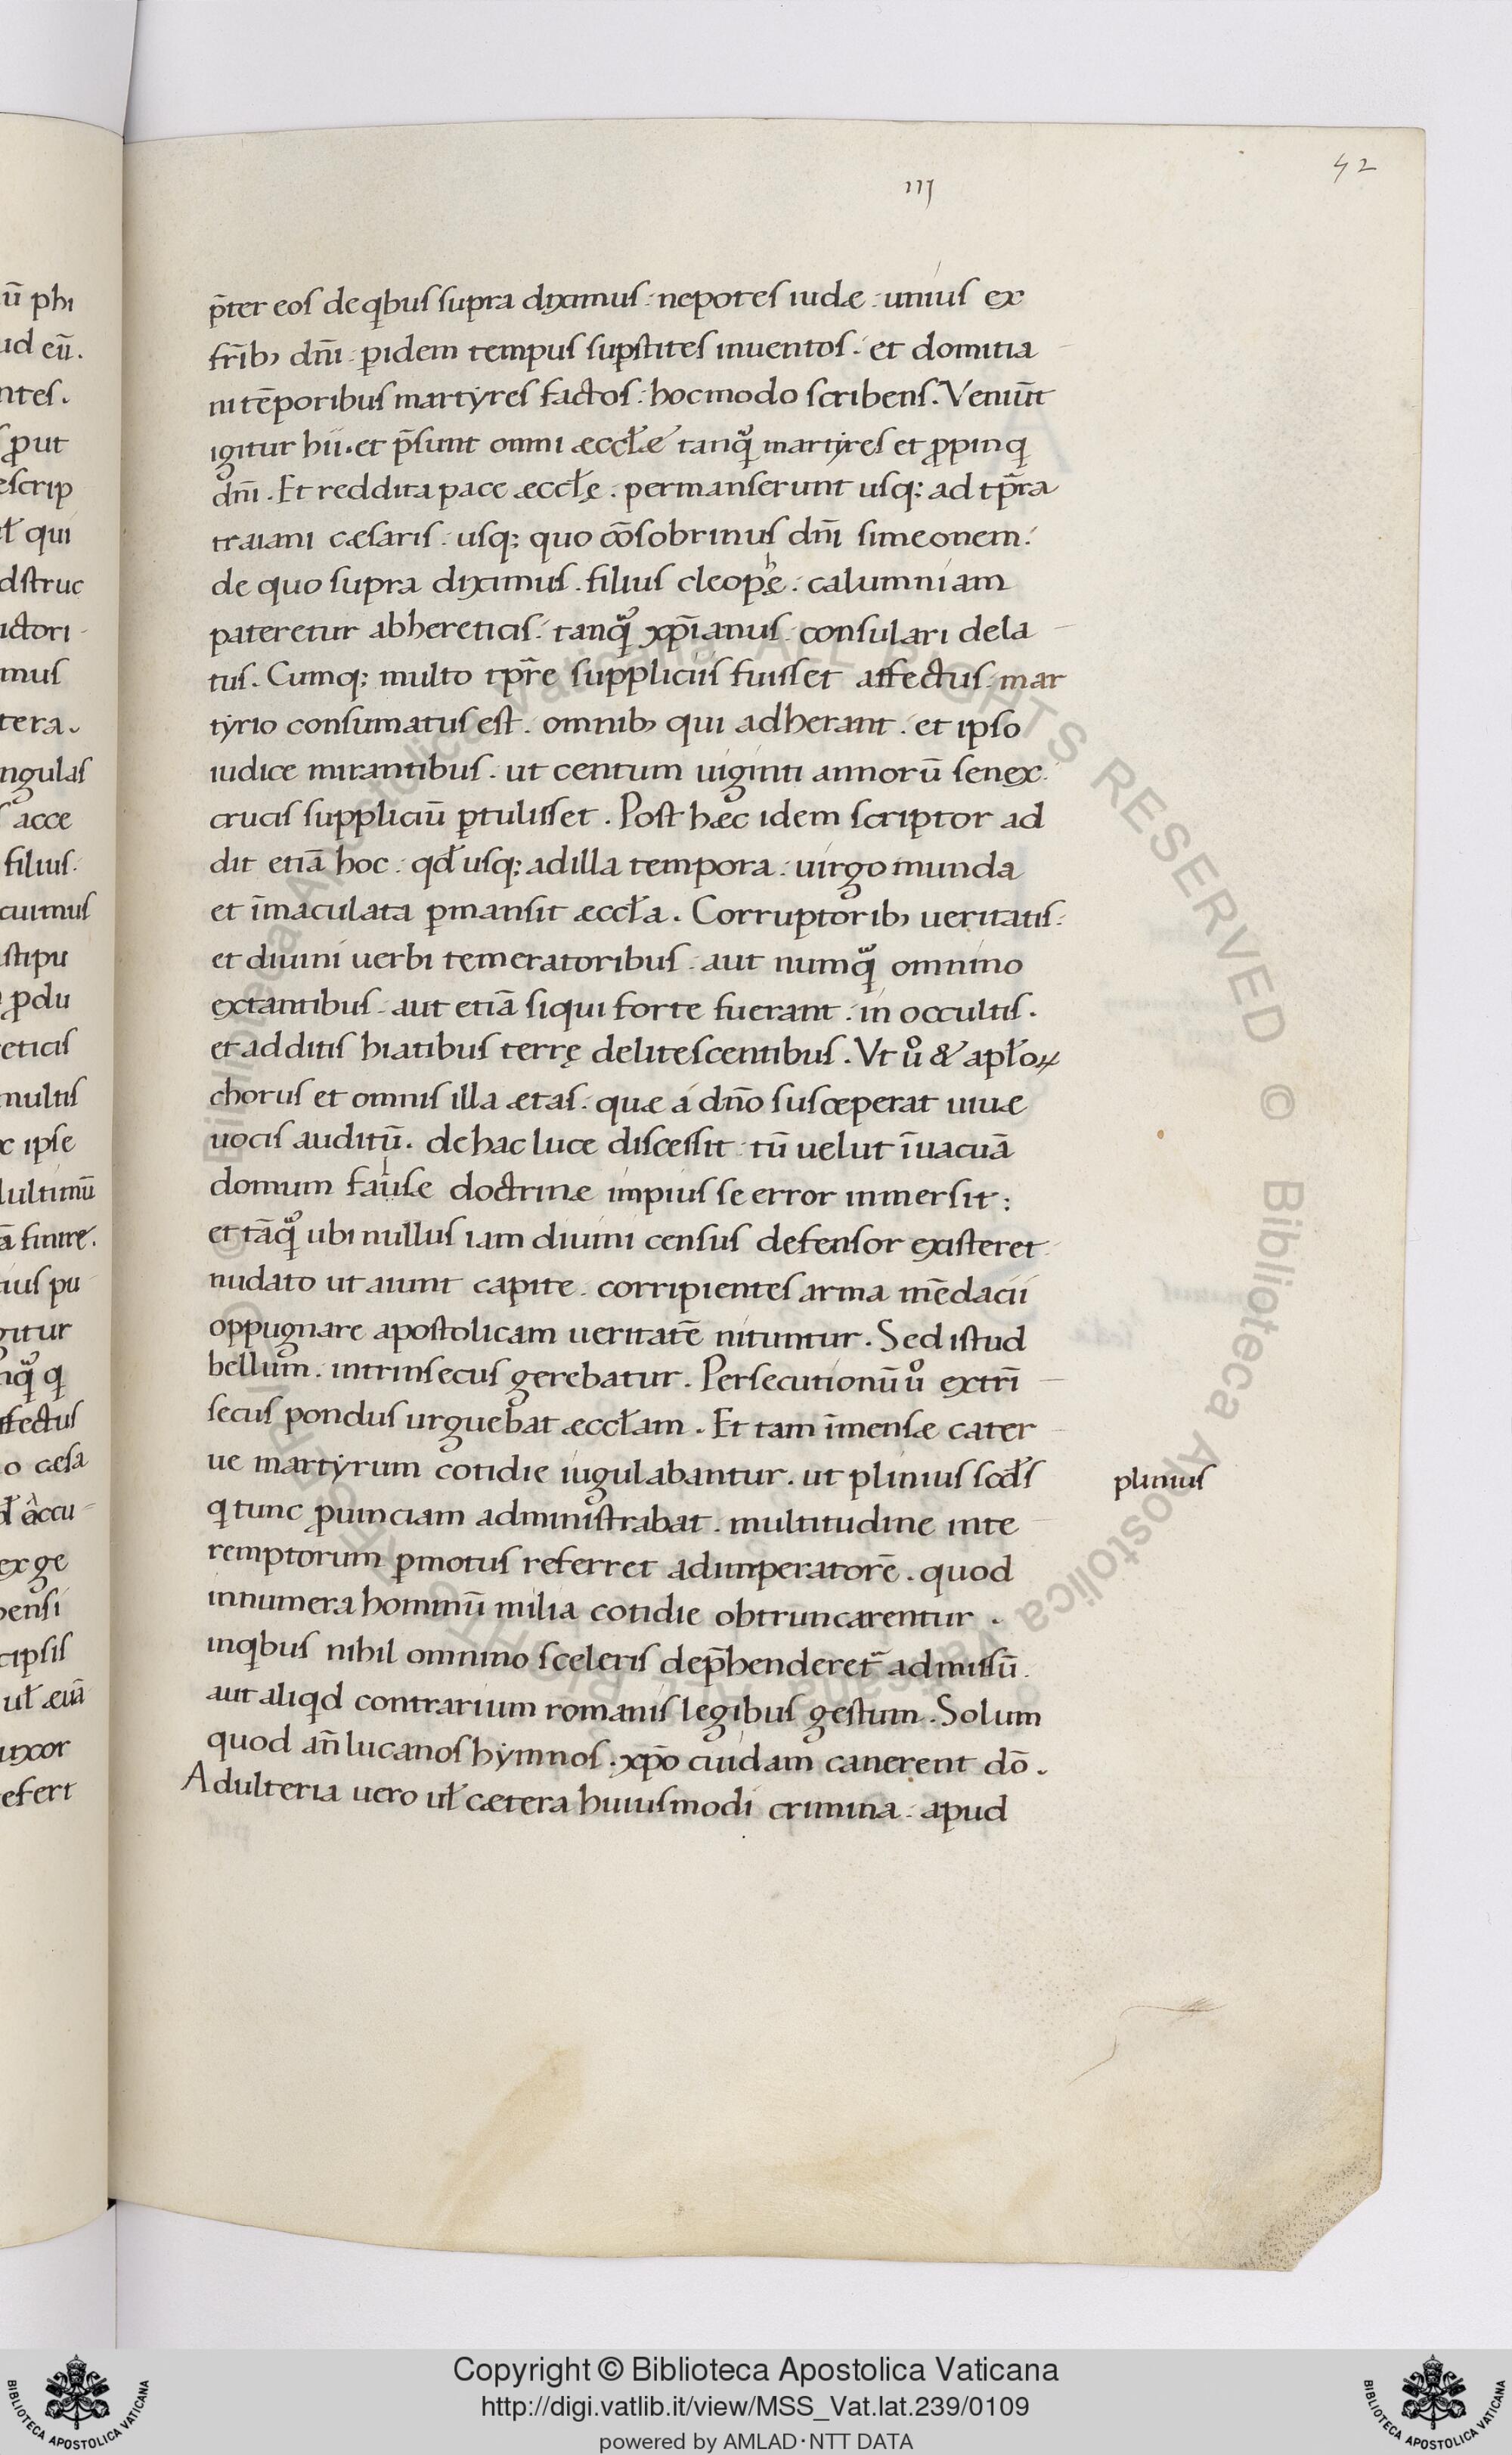 iij
42
p̄ter eos de qbus supra diximus · nepotes iudæ · unius ex
fr̄ib; dn̄i · p idem tempus supstites inuentos · et domitia
ni tēporibus martyres factos · hoc modo scribens . Veniūt
igitur hii · et p̄sunt omni æccłæ tanqͣ̃ martyres et ꝓpinq
dn̄i . Et reddita pace æccłę . permanserunt usq; ad tp̄ra
traiani cæsaris . usq; quo cōsobrinus dn̄i simeonem .
de quo supra diximus . filius cleopę . calumniam
pateretur ab hereticis . tanqͣ̃ xp̄ianus . consulari dela
tus . Cumq; multo tp̄re suppliciis fuisset affectus . mar
tyrio consumatus est . omnib; qui adherant . et ipso
iudice mirantibus . ut centum uiginti annorū senex .
crucis suppliciū ꝑtulisset . Post hæc idem scriptor ad
dit etiā hoc . qđ usq; ad illa tempora . uirgo munda
et īmaculata ꝑmansit æccła . Corruptorib; ueritatis .
et diuini uerbi temeratoribus . aut numqͣ̃ omnino
extantibus . aut etiā siqui forte fuerant . in occultis .
et additis hiatibus terrę delitescentibus . Vt uͦ & apłoꝝ
chorus et omnis illa ætas . quæ a dn̄o susceperat uiuæ
uocis auditū . de hac luce discessit . tū uelut ī uacuā
domum fausæ doctrinæ impius se error inmersit :
et tāqͣ̃ ubi nullus iam diuini census defensor existeret
nudato ut aiunt capite . corripientes arma mēdacii
oppugnare apostolicam ueritatē nituntur . Sed istud
bellum . intrinsecus gerebatur . Persecutionū uͦ extrī
secus pondus urguebat æccłam . Et tam īmensæ cater
ue martyrum cotidie iugulabantur . ut plinius scđs
q tunc ꝓuinciam administrabat . multitudine inte
remptorum ꝑmotus referret ad imperatorē . quod
innumera hominū milia cotidie obtruncarentur .
in qbus nihil omnino sceleris dep̄henderet᷑ admissū .
aut aliqd contrarium romanis legibus gestum . Solum
quod an̄lucanos hymnos . xp̄o cuidam canerent dō .
Adulteria uero uł cætera huiusmodi crimina . apud
plinius
ū phi
ud eū .
ntes .
ꝓut
escrip
ł qui
dstruc
uctori
mus
tera .
ngulas
acce
filius .
cuimus
stipu
ꝓdu
eticis
multis
c ipse
ultimū
ā finire .
ius pu
gitur
nqͣ̃ q
ffectus
o cæsa
accu
ex ge
bensi
cipsis
uł æuā
uxor
efert
Copyright © Biblioteca Apostolica Vaticana
http://digi.vatlib.it/view/MSS_Vat.lat.239/0109
powered by AMLAD·NTT DATA
BIBLIOTECA APOSTOLICA VATICANA
BIBLIOTECA APOSTOLICA VATICANA